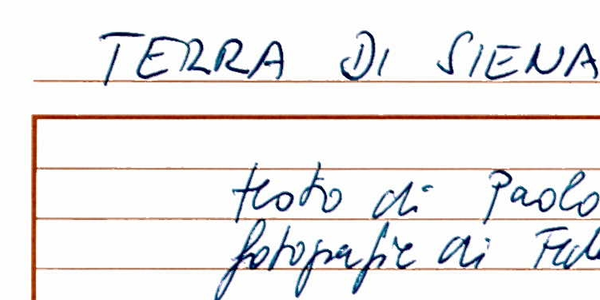 TERRA DI SIENA
testo di Paolo
fotografie di